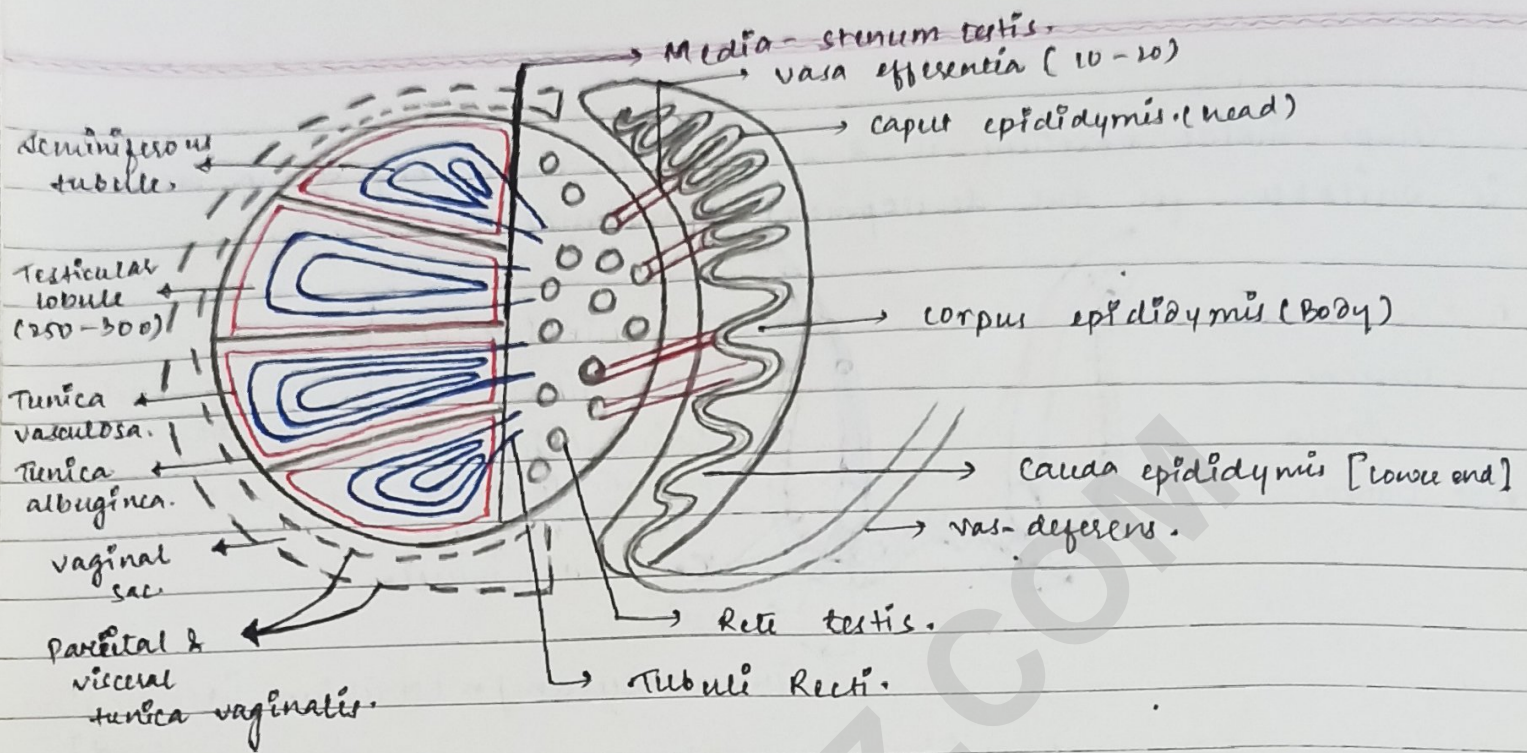 Media-stenum testis.
vasa efferentia (10-20)
caput epididymis. (head)
seminiferous
tubule.
Testicular
lobule
(250-300)
corpus epididymis (Body)
Tunica
vasculosa.
Tunica
albuginea.
cauda epididymis [lower end]
vas-deferens.
vaginal
sac.
Rete testis.
Parietal &
visceral
tunica vaginalis.
Tubuli Recti.
Z.COM